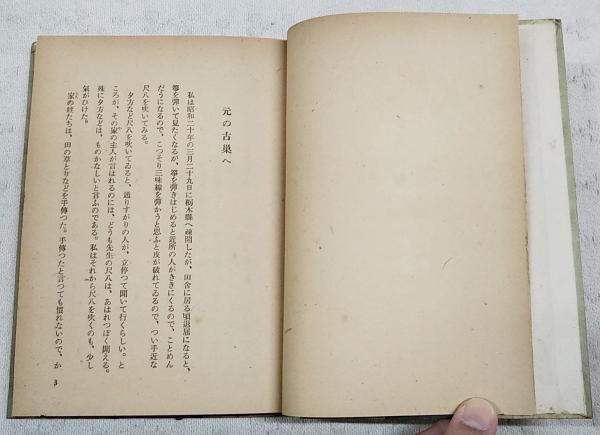 元の古巣へ
私は昭和二十年の三月二十九日に栃木縣へ疎開したが、田舎に居る頃退屈になると、
箏を弾いて見たくなるが、箏を弾きはじめると近所の人がききにくるので、ことめん
だうになるので、こつそり三味線を弾かうと思ふと皮が破れてゐるので、つい手近な
尺八を吹いてみる。
夕方など尺八を吹いてゐると、通りすがりの人が、立停つて聞いて行くらしい。と
ころが、その家の主人が言はれるのには、どうも先生の尺八は、あはれつぽく聞える。
殊に夕方などは、ものかなしいと言ふのである。私はそれから尺八を吹くのも、少し
氣がひけた。
家の姪たちは、田の草とりなどを手傳つた。手傳つたと言つても慣れないので、か
3